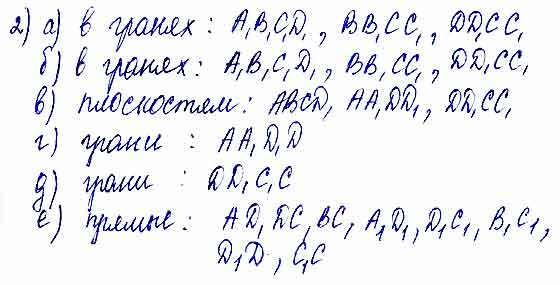 2) а) в гранях : A₁B₁C₁D₁ , BB₁CC₁ , DD₁CC₁
б) в гранях : A₁B₁C₁D₁ , BB₁CC₁ , DD₁CC₁
в) плоскостям : ABCD, AA₁DD₁ , DD₁CC₁
г) грани : AA₁D₁D
д) грани : DD₁C₁C
е) прямые : AD, DC, BC, A₁D₁, D₁C₁, B₁C₁,
D₁D , C₁C